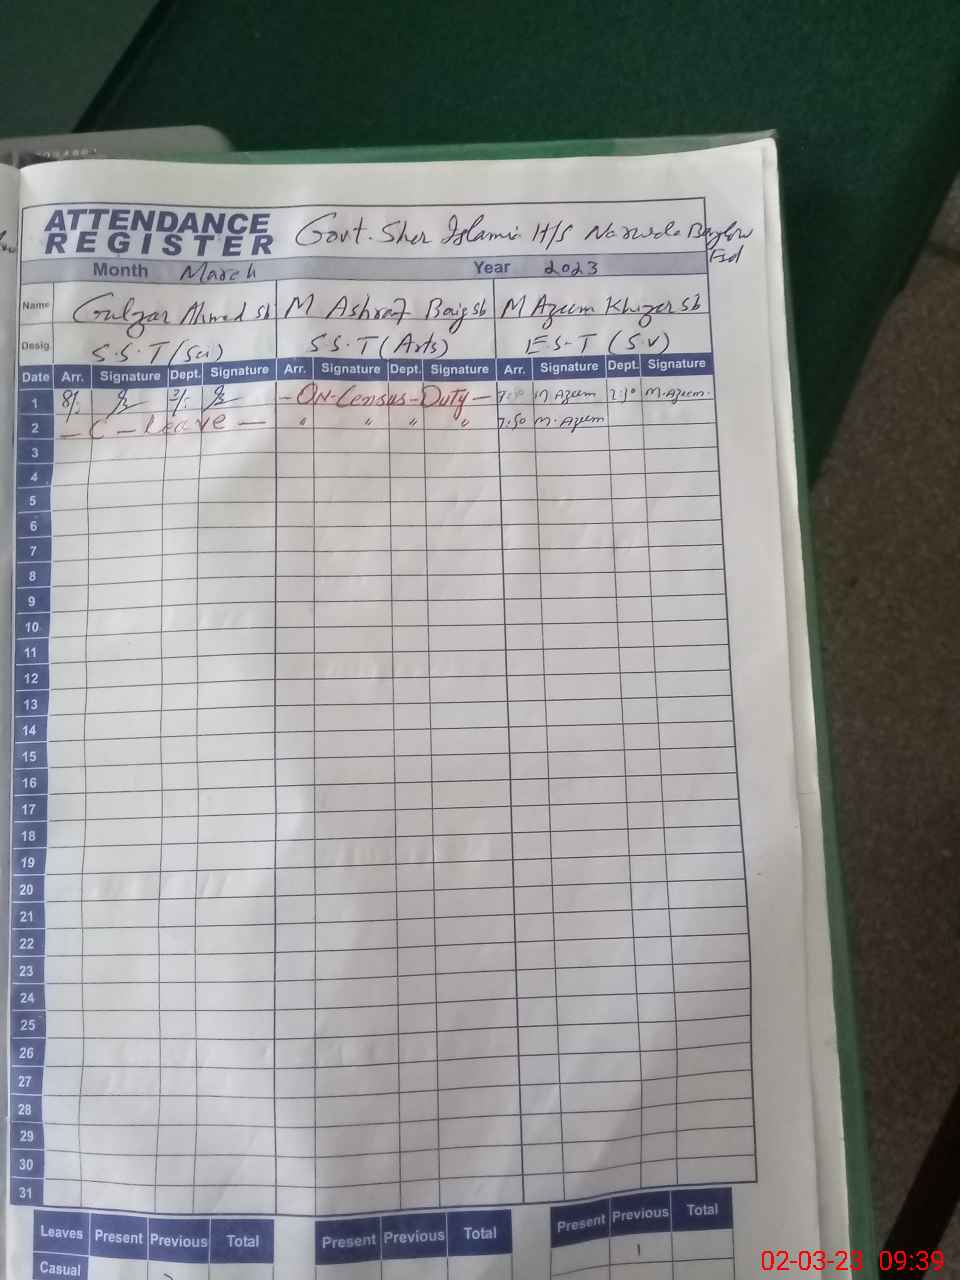 ATTENDANCE
REGISTER
Govt. Sher Islamic H/S Narwala Banglow
Fsd
Month March Year 2023
Name Gulzar Ahmed Sb M Ashraf Baig Sb M Azeem Khizar Sb
Desig. S.S.T (Sci) S.S.T (Arts) E.S.T (S.V)
Date Arr. Signature Dept. Signature Arr. Signature Dept. Signature Arr. Signature Dept. Signature
1 8/: - On-Census-Duty - M Azeem 2:30 M.Azeem.
2 - C - Leave - " " " " 7:50 M.Azeem
3
4
5
6
7
8
9
10
11
12
13
14
15
16
17
18
19
20
21
22
23
24
25
26
27
28
29
30
31
Leaves Present Previous Total Present Previous Total Present Previous Total
Casual 1
02-03-23 09:39